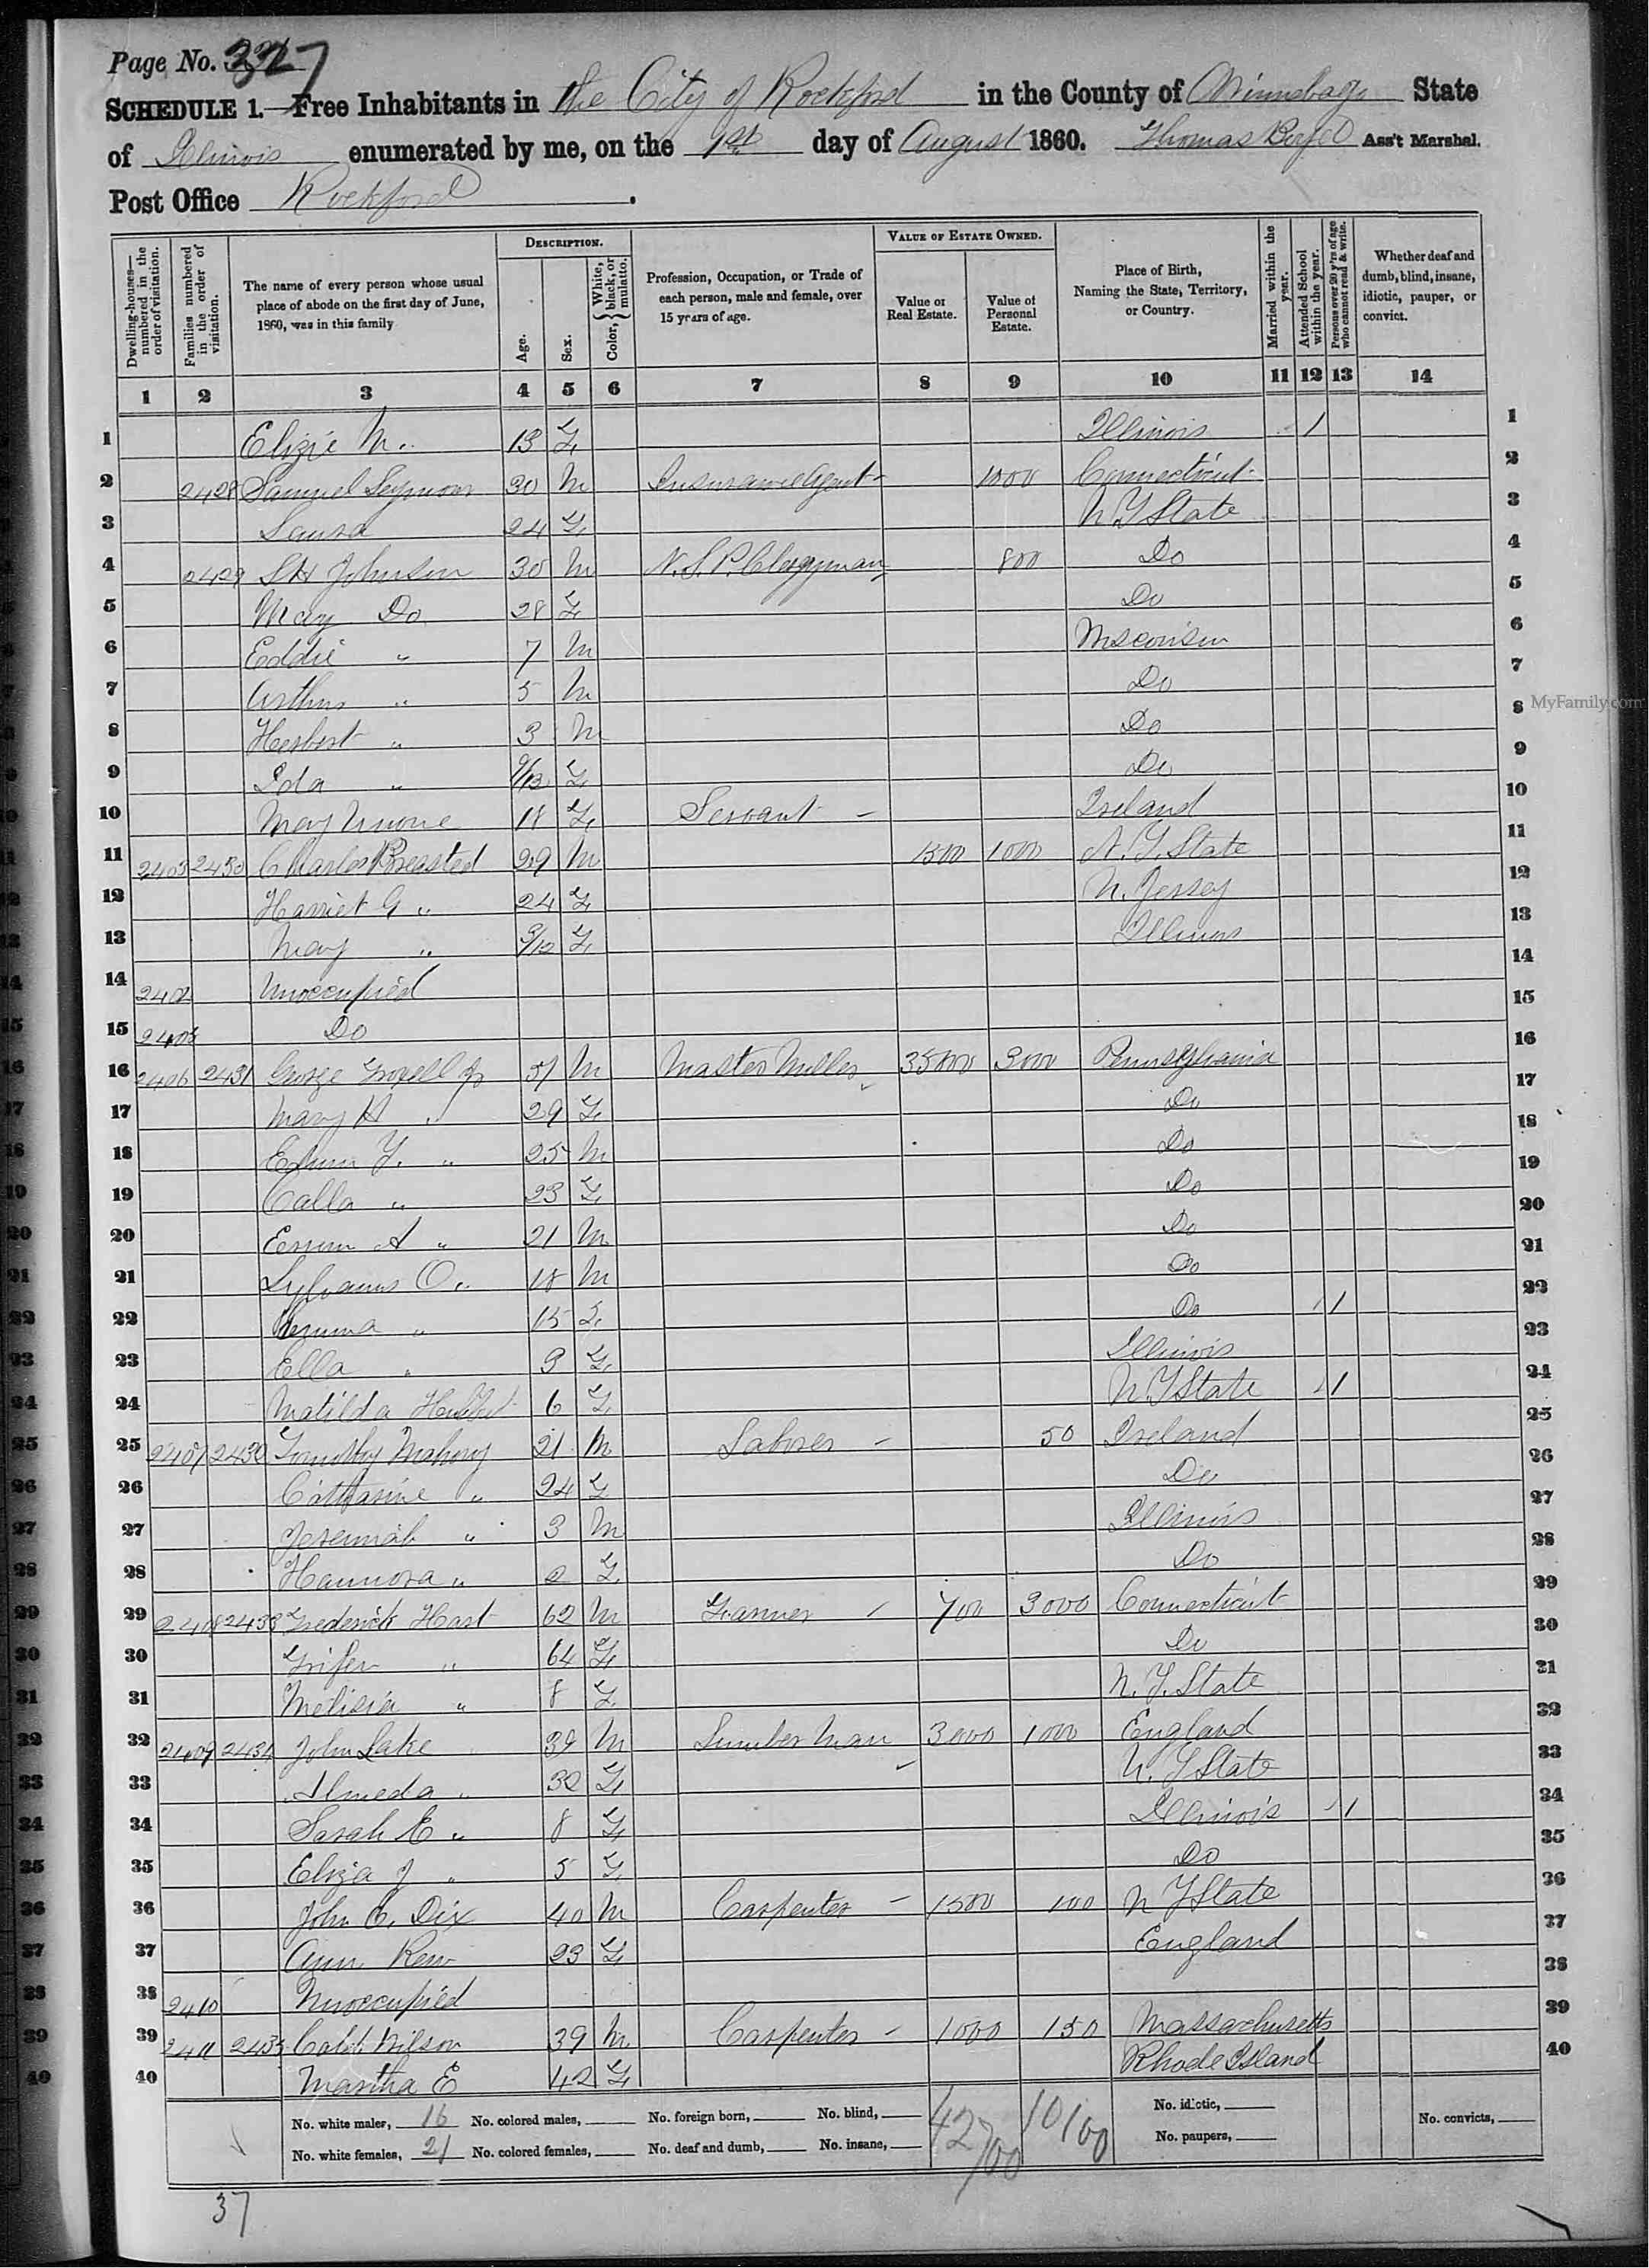 Page No. 327
SCHEDULE 1.—Free Inhabitants in the City of Rockford in the County of Winnebago State
of Illinois enumerated by me, on the 1st day of August 1860. Thomas Ass't Marshal.
Post Office Rockford.
Dwelling-houses—numbered in the order of visitation. Families numbered in the order of visitation. The name of every person whose usual place of abode on the first day of June, 1860, was in this family DESCRIPTION. Age. Sex. Color, {White, black, or mulatto. Profession, Occupation, or Trade of each person, male and female, over 15 years of age. VALUE OF ESTATE OWNED. Value of Real Estate. Value of Personal Estate. Place of Birth, Naming the State, Territory, or Country. Married within the year. Attended School within the year. Persons over 20 y'rs of age who cannot read & write. Whether deaf and dumb, blind, insane, idiotic, pauper, or convict.
1 2 3 4 5 6 7 8 9 10 11 12 13 14
1 Elizie M. 13 F Illinois 1 1
2 2428 Samuel Seymour 30 M Insurance Agent 1000 Connecticut 2
3 Laura 24 F N Y State 3
4 2429 S H Johnson 30 M N. S. P. Clergyman 800 Do 4
5 Mary Do 28 F Do 5
6 Eddie " 7 M Wisconsin 6
7 Arthur " 5 M Do 7
8 Herbert " 3 M Do 8
MyFamily.com
9 Ida " F Do 9
10 Mary 18 F Servant Ireland 10
11 2403 2430 Charles Breasted 29 M 1500 1000 N. Y. State 11
12 Harriet G " 24 F N. Jersey 12
13 Mary " 9/12 F Illinois 13
14 Unoccupied 14
15 2405 Do 15
16 2406 2431 George Jr 51 M Master Miller 35000 3000 Pennsylvania 16
17 Mary A " 29 F Do 17
18 Y. " 25 M Do 18
19 Calla " 23 F Do 19
20 A " 21 M Do 20
21 Sylvanus O " 18 M Do 21
22 " 15 F Do 1 22
23 Ella " 9 F Illinois 23
24 Matilda 6 F N Y State 1 24
25 2407 2432 Timothy Mahony 21 M Laborer 50 Ireland 25
26 Catharine " 24 F Do 26
27 Jeremiah " 3 M Illinois 27
28 Hannora " 2 F Do 28
29 2408 2433 Frederick Hart 62 M Farmer 700 3000 Connecticut 29
30 " 64 F Do 30
31 Melisia " 8 F N. Y. State 31
32 2409 2434 John Lake 39 M Lumber Man 3000 1000 England 32
33 Almeda " 32 F N. Y State 33
34 Sarah E " 8 F Illinois 1 34
35 Eliza J " 5 F Do 35
36 John C. Dix 40 M Carpenter 1500 100 N Y State 36
37 Ann Rew 23 F England 37
38 2410 Unoccupied 38
39 2411 2435 Caleb Wilson 39 M Carpenter 1000 150 Massachusetts 39
40 Martha E 42 F Rhode Island 40
No. white males, 16 No. colored males, No. foreign born, No. blind, 42700 10100 No. idiotic,
No. white females, 21 No. colored females, No. deaf and dumb, No. insane, No. paupers, No. convicts,
37